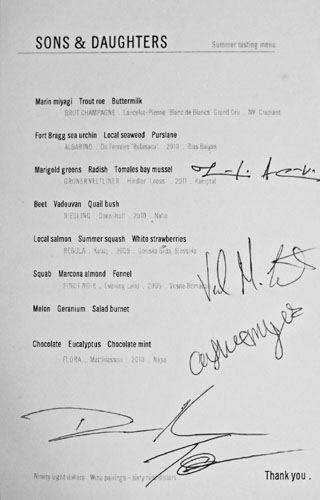 SONS & DAUGHTERS Summer tasting menu
Marin miyagi Trout roe Buttermilk
BRUT CHAMPAGNE . Lancelot-Pienne 'Blanc de Blancs' Grand Cru . NV Cramant
Fort Bragg sea urchin Local seaweed Purslane
ALBARINO . Do Ferreiro "Rebisaca" . 2010 . Rias Baixas
Marigold greens Radish Tomales bay mussel
GRUNER VELTLINER . Hiedler "Loess" . 2011 . Kamptal
Beet Vadouvan Quail bush
RIESLING . 2010 . Nahe
Local salmon Summer squash White strawberries
2009
Squab Marcona almond Fennel
PINOT NOIR . Evening Land . 2009 . Vosne Romanee
Melon Geranium Salad burnet
Chocolate Eucalyptus Chocolate mint
FLORA . Matthiasson . 2010 . Napa
Ninety eight dollars . Wine pairings - sixty nine dollars
Thank you .